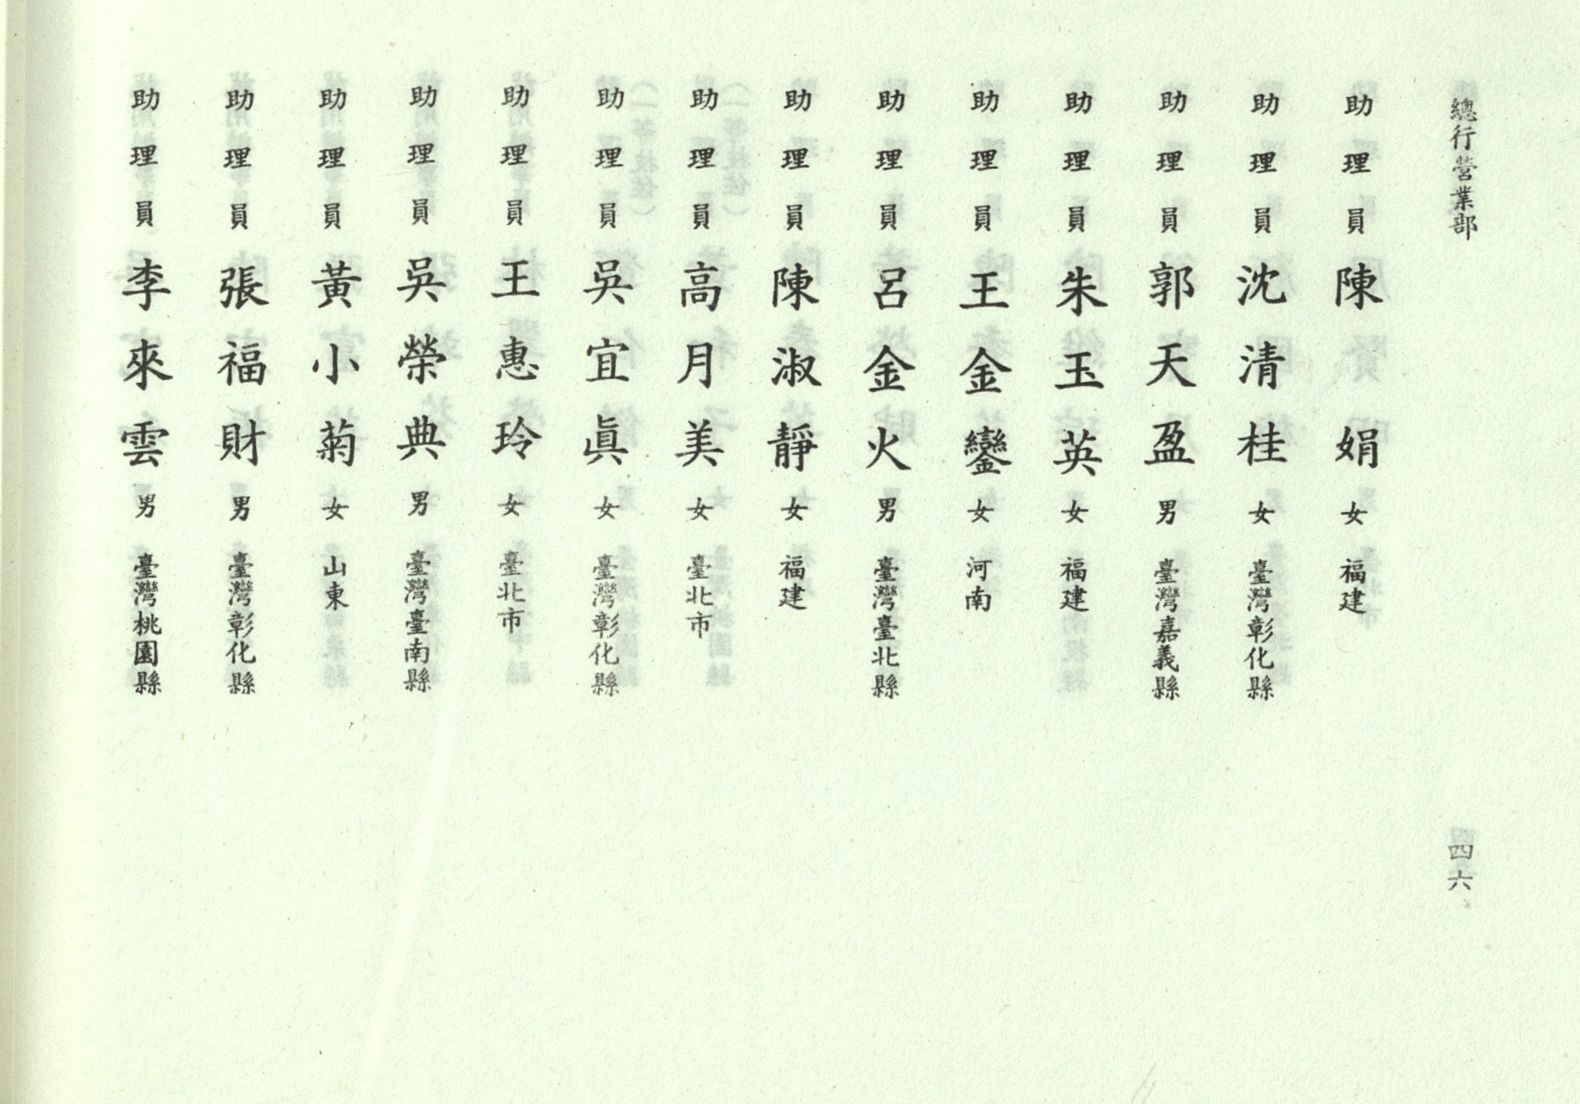 總行營業部
四六
助理員 陳娟 女 福建
助理員 沈清桂 女 臺灣彰化縣
助理員 郭天盈 男 臺灣嘉義縣
助理員 朱玉英 女 福建
助理員 王金鑾 女 河南
助理員 呂金火 男 臺灣臺北縣
助理員 陳淑靜 女 福建
助理員 高月美 女 臺北市
助理員 吳宜眞 女 臺灣彰化縣
助理員 王惠玲 女 臺北市
助理員 吳榮典 男 臺灣臺南縣
助理員 黃小菊 女 山東
助理員 張福財 男 臺灣彰化縣
助理員 李來雲 男 臺灣桃園縣